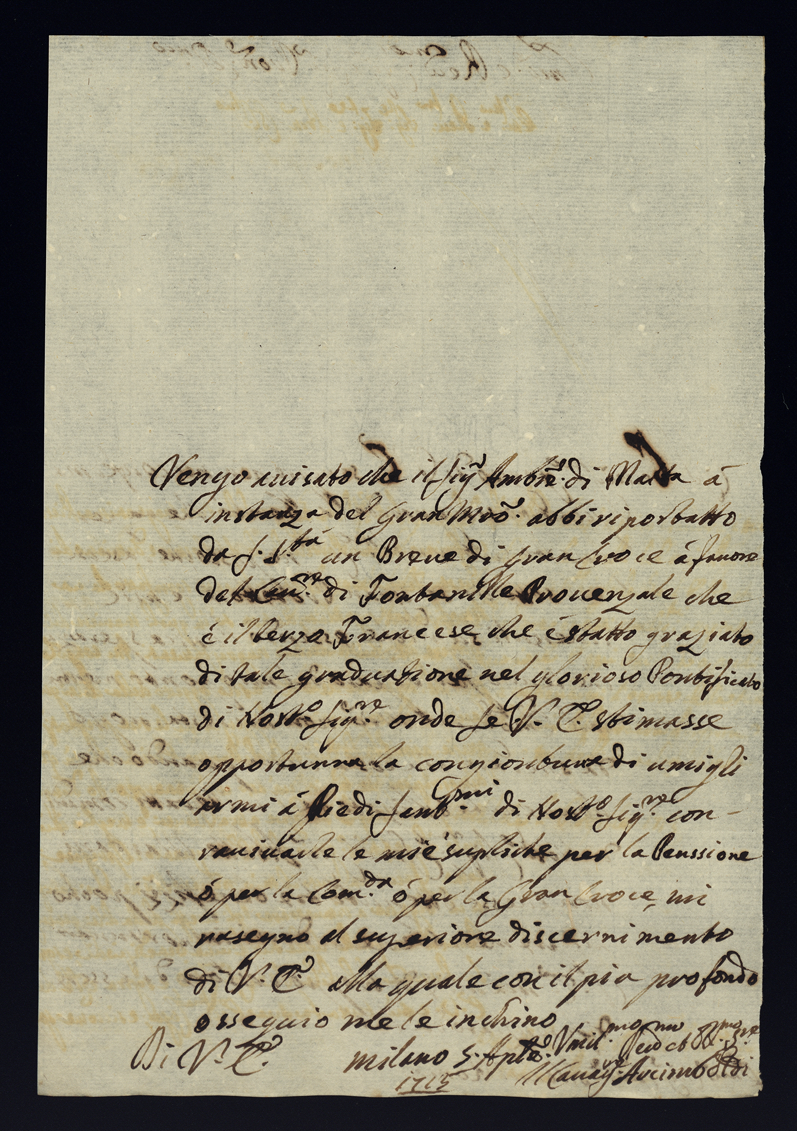 Vengo auisato che il Sigr Ambre. di Malta á
instanza del Gran Mro. abbi riportatto
da S. Stá un Breue di Gran Croce á fauore
del Caure. di Fontanille Prouenzale che
é il terzo Francese che é statto graziato
di tale graduatione nel glorioso Pontificato
di Nostro Sigre. onde se V. E. stimasse
opportunna la congiontura di umigli
armi á Piedi Santmi di Nostro Sigre con-
rauiuarle le mie supliche per la Penssione
ó per la Comda ó per la Gran Croce, mi
rasegno al superiore discernimento
di V. E. alla quale con il piu profondo
ossequio me le inchino
Di V. E. Milano 5. Umilmo
1715 Arcimboldi